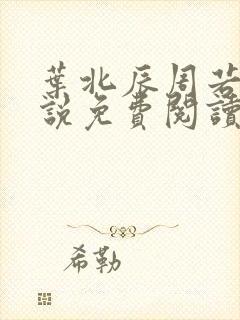 葉北辰周若
說免費閱讀
希勒